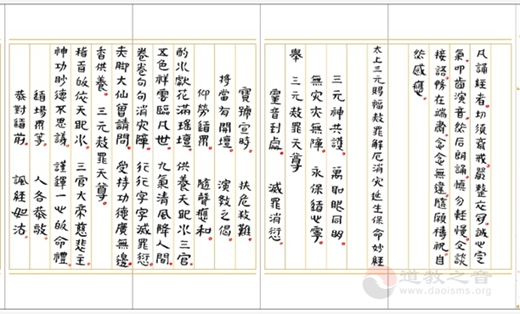 凡誦經者切須齋戒嚴整衣冠誠心定
氣叩齒演音然后朗誦慎勿輕慢交談
接語務在端肅念念無違隨願禱祝自
然感應
太上三元賜福赦罪解厄消災延生保命妙經
三元神共護 萬聖眼同明
無災亦無障 永保道心寧
舉 三元赦罪天尊
靈音到處 滅罪消愆
寶號宣時 扶危救難
將當有開壇 演教之偈
仰勞道眾 隨聲應和
酌水獻花滿瑤壇 供養天地水三官
五色祥雲臨凡世 九氣清風降人間
卷卷句句消災障 行行字字滅罪愆
赤脚大仙曾請問 受持功德廣無邊
香供養 三元赦罪天尊
首皈依天地水 三官大帝慈悲主
神功妙德不思議 謹 一心皈命禮
道場眾等 人各恭敬
恭對道前 諷經如法
道教之音
www.daoisms.org